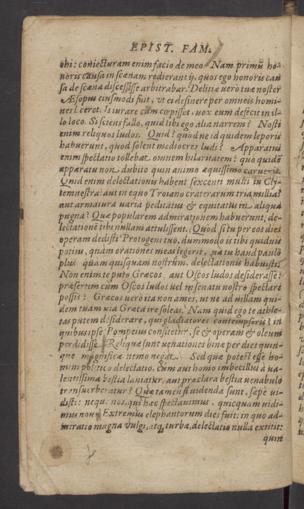 EPIST. FAM.
ohi: coniecturam enim facio de meo. Nam primū ho
noris causa in scænam redierant ij, quos ego honoris cau
sa de scæna discessisse arbitrabar. Delitiæ uero tuæ noster
Æsopus eiusmodi fuit, ut ei desinere per omneis homi
nes liceret. Is iurare cum cœpisset, uox eum defecit in il
lo loco, Si sciens fallo. quid tibi ego alia narrem? Nosti
enim reliquos ludos. Quid? quod ne id quidem leporis
habuerunt, quod solent mediocres ludi? Apparatus
enim spectatio tollebat omnem hilaritatem: quo quidē
apparatu non dubito quin animo æquissimo carueris.
Quid enim delectationis habent sexcenti muli in Cly
temnestra? aut in equo Troiano craterarum tria millia?
aut armatura uaria peditatus & equitatus in aliqua
pugna? Quæ popularem admirationem habuerunt, de
lectationē tibi nullam attulissent. Quod si tu per eos dies
operam dedisti Protogeni tuo, dummodo is tibi quiduis
potius, quàm orationes meas legerit, næ tu haud paulo
plus quàm quisquam nostrûm, delectationis habuisti.
Non enim te puto Græcos, aut Oscos ludos desiderasse:
præsertim cum Oscos ludos uel in senatu nostro spectare
possis: Græcos uero ita non ames, ut ne ad uillam qui-
dem tuam uia Græca ire soleas. Nam quid ego te athle-
tas putem desiderare, qui gladiatores contempseris? in
quibus ipse Pompeius confitetur, se & operam & oleum
perdidisse. Reliquæ sunt uenationes binæ per dies quin-
que magnificæ nemo negat. Sed quæ potest esse ho-
mini politico delectatio, cum aut homo imbecillus à ua-
lentissima bestia laniatur, aut præclara bestia uenabulo
transuerberatur? Quæ tamen si uidenda sunt, sæpe ui-
disti: neque nos, qui hæc spectauimus, quicquam uidi-
mus noui. Extremus elephantorum dies fuit: in quo ad-
miratio magna uulgi, atq; turbæ, delectatio nulla extitit:
quin